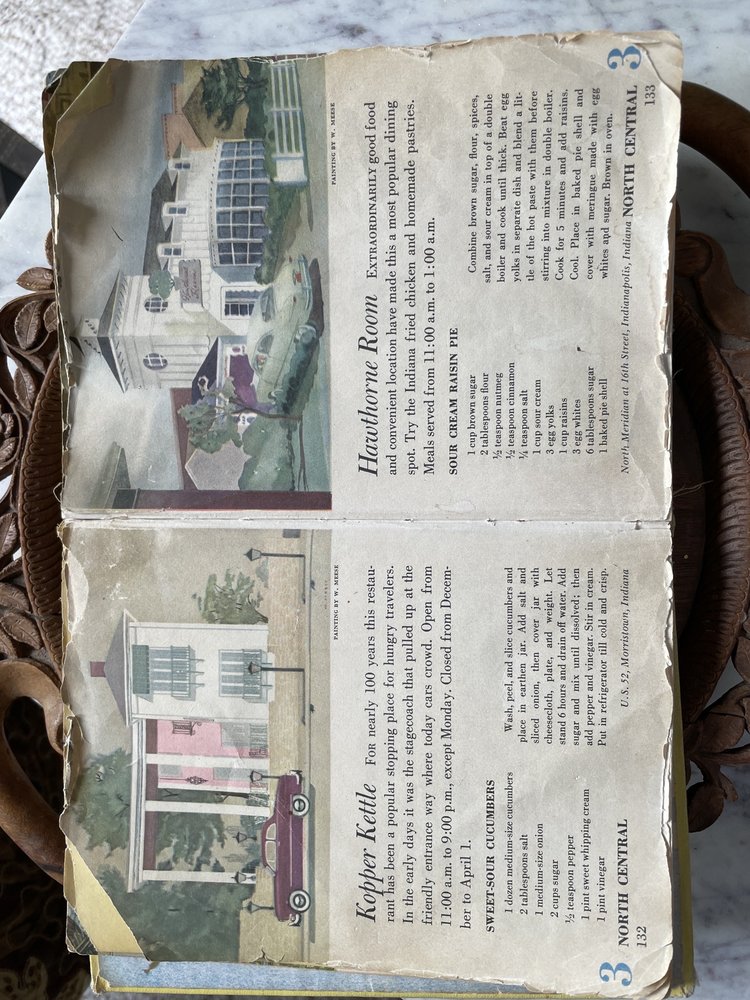 PAINTING BY W. MEESE
Kopper Kettle FOR nearly 100 years this restau-
rant has been a popular stopping place for hungry travelers.
In the early days it was the stagecoach that pulled up at the
friendly entrance way where today cars crowd. Open from
11:00 a.m. to 9:00 p.m., except Monday. Closed from Decem-
ber to April 1.
SWEET-SOUR CUCUMBERS
1 dozen medium-size cucumbers
2 tablespoons salt
1 medium-size onion
2 cups sugar
½ teaspoon pepper
1 pint sweet whipping cream
1 pint vinegar
Wash, peel, and slice cucumbers and
place in earthen jar. Add salt and
sliced onion, then cover jar with
cheesecloth, plate, and weight. Let
stand 6 hours and drain off water. Add
sugar and mix until dissolved; then
add pepper and vinegar. Stir in cream.
Put in refrigerator till cold and crisp.
U.S. 52, Morristown, Indiana
3 NORTH CENTRAL
132
PAINTING BY W. MEESE
Hawthorne Room EXTRAORDINARILY good food
and convenient location have made this a most popular dining
spot. Try the Indiana fried chicken and homemade pastries.
Meals served from 11:00 a.m. to 1:00 a.m.
SOUR CREAM RAISIN PIE
1 cup brown sugar
2 tablespoons flour
½ teaspoon nutmeg
½ teaspoon cinnamon
¼ teaspoon salt
1 cup sour cream
3 egg yolks
1 cup raisins
3 egg whites
6 tablespoons sugar
1 baked pie shell
Combine brown sugar, flour, spices,
salt, and sour cream in top of a double
boiler and cook until thick. Beat egg
yolks in separate dish and blend a lit-
tle of the hot paste with them before
stirring into mixture in double boiler.
Cook for 5 minutes and add raisins.
Cool. Place in baked pie shell and
cover with meringue made with egg
whites and sugar. Brown in oven.
North Meridian at 16th Street, Indianapolis, Indiana
NORTH CENTRAL 3
133